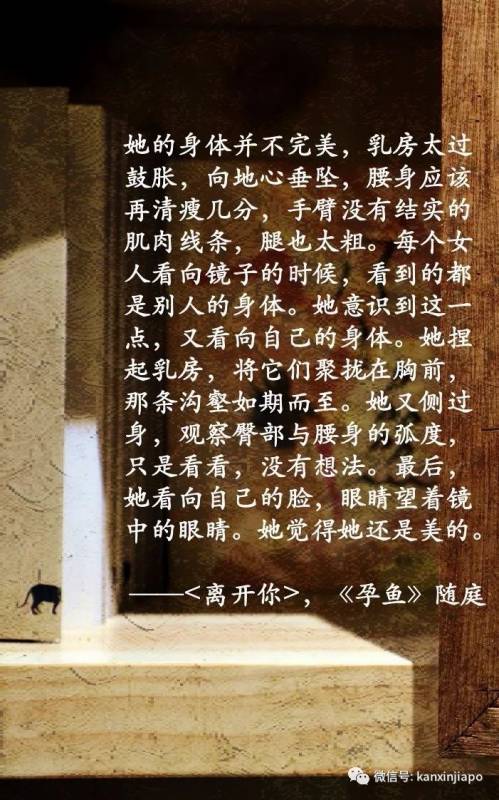 她的身体并不完美，乳房太过
鼓胀，向地心垂坠，腰身应该
再清瘦几分，手臂没有结实的
肌肉线条，腿也太粗。每个女
人看向镜子的时候，看到的都
是别人的身体。她意识到这一
点，又看向自己的身体。她捏
起乳房，将它们聚拢在胸前，
那条沟壑如期而至。她又侧过
身，观察臀部与腰身的弧度，
只是看看，没有想法。最后，
她看向自己的脸，眼睛望着镜
中的眼睛。她觉得她还是美的。
——<离开你>，《孕鱼》随庭
微信号: kanxinjiapo